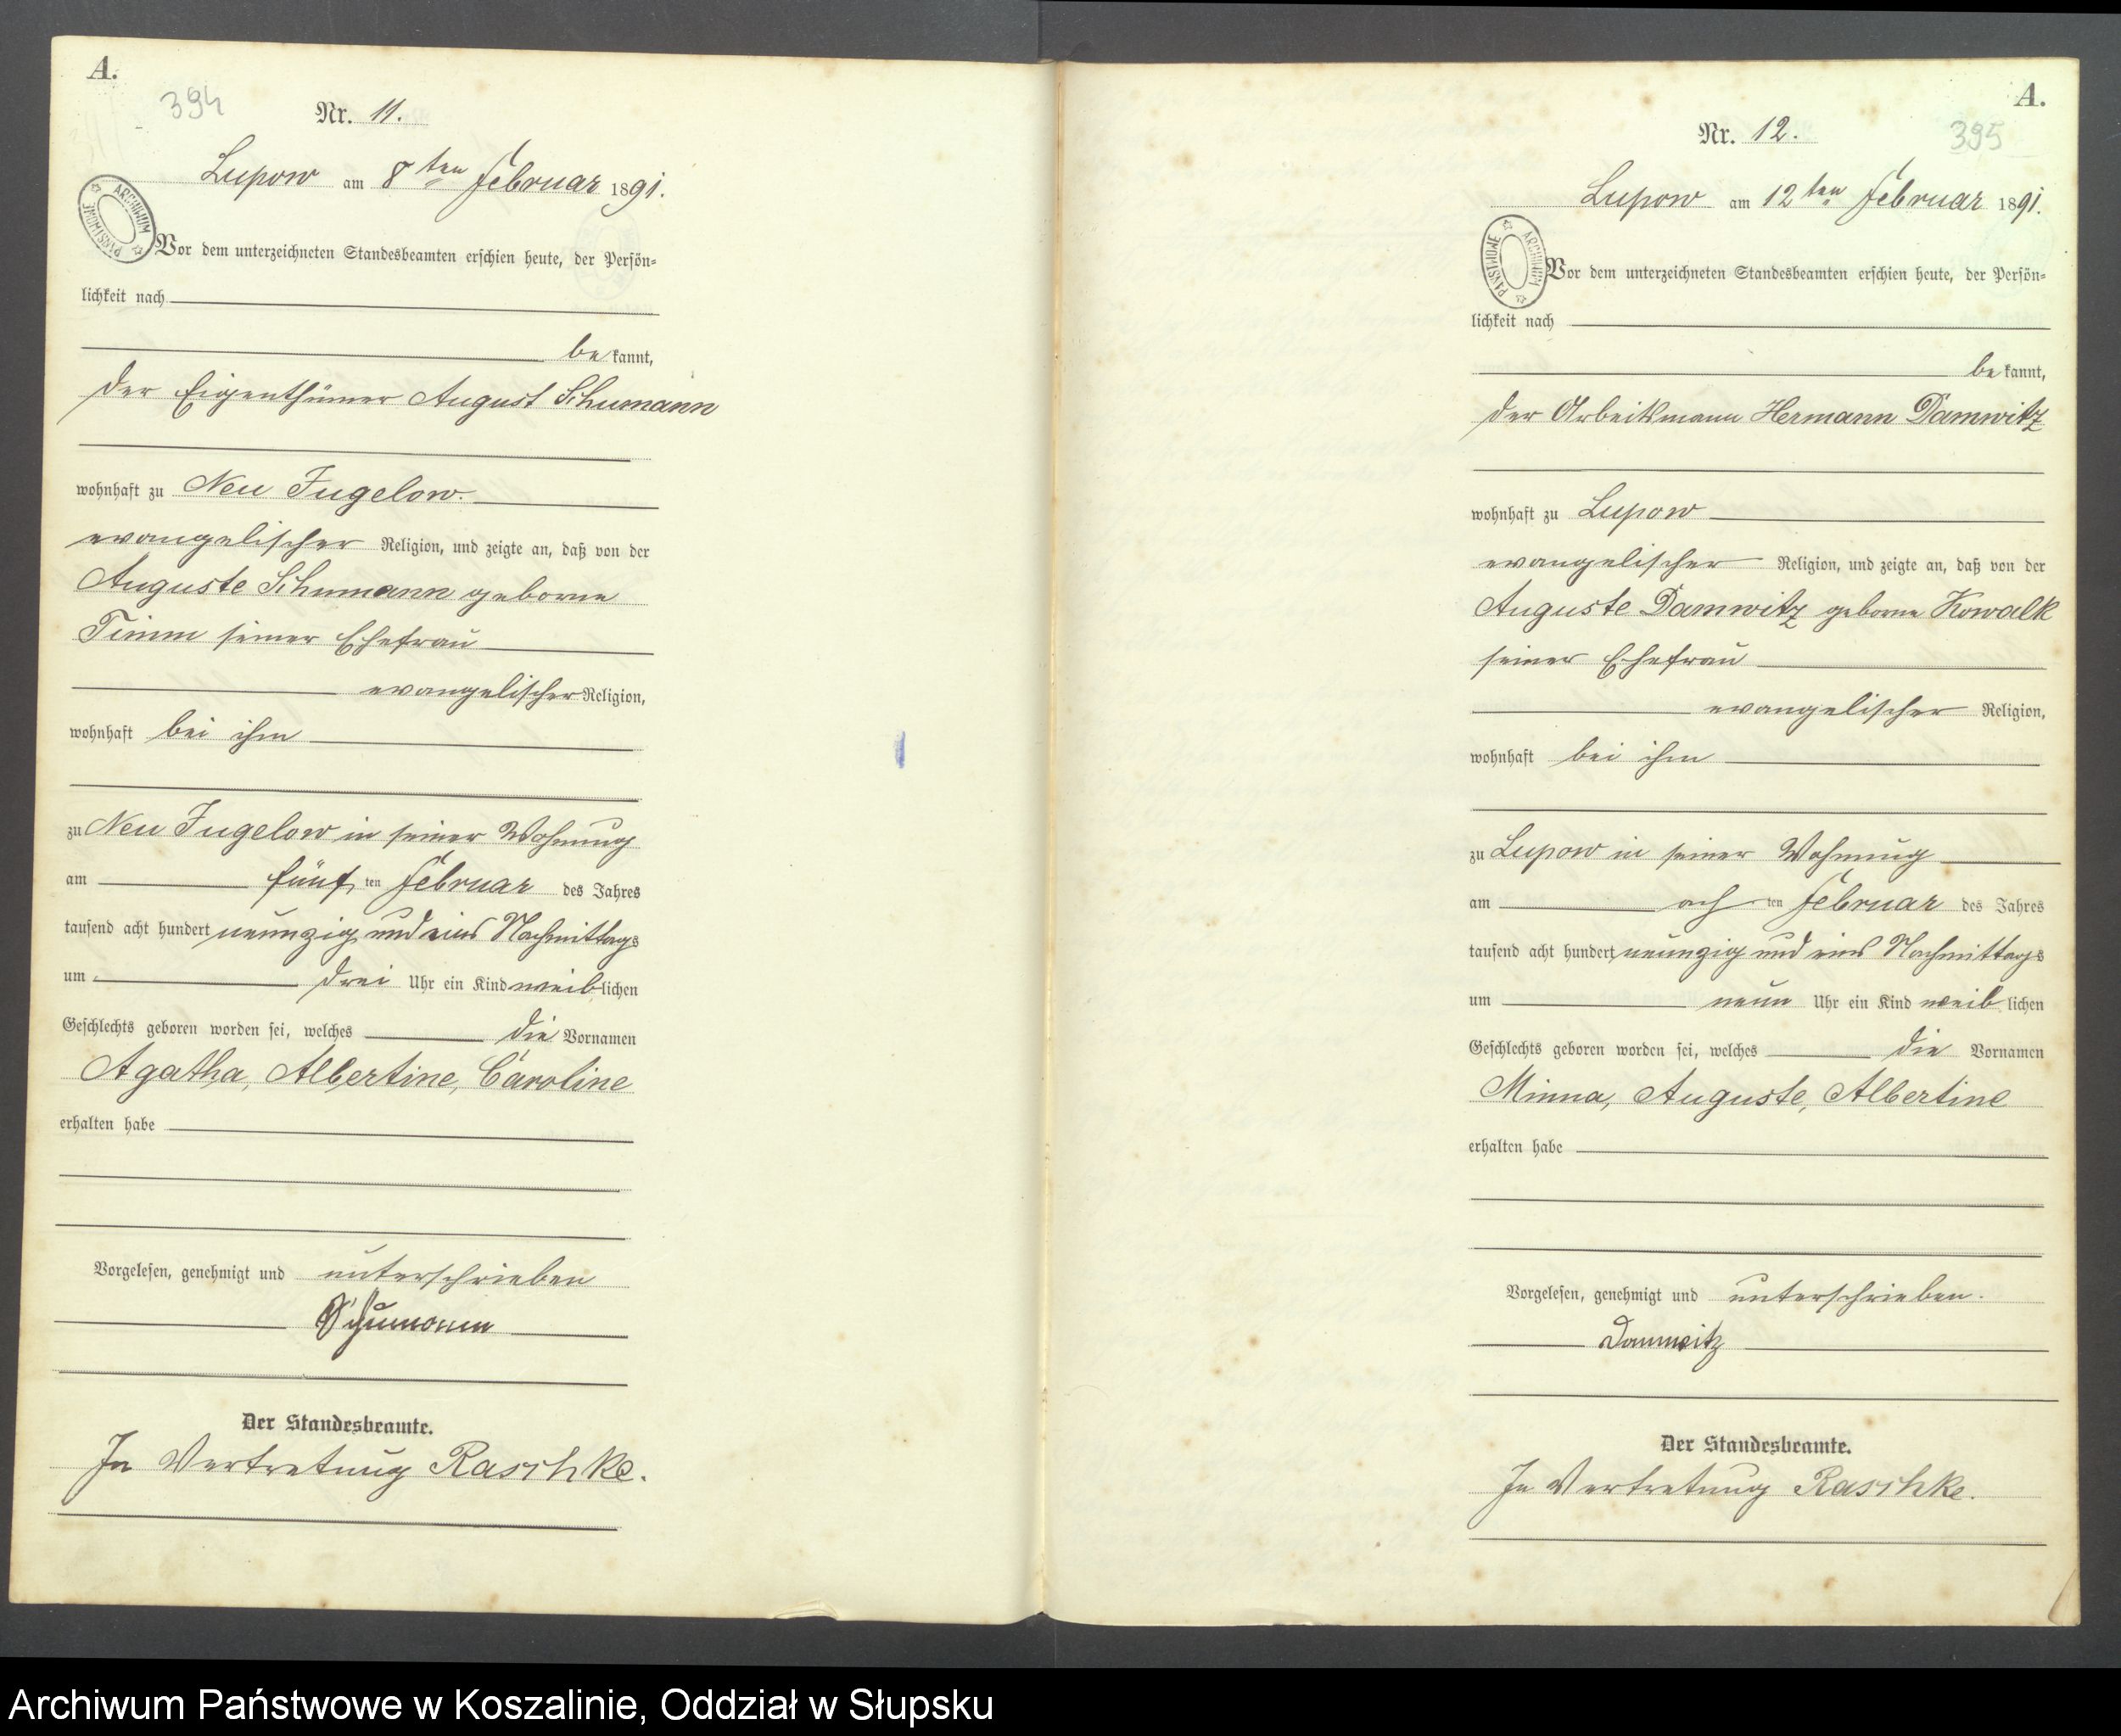 A.
394
Nr. 11.
Lupow am 8ten Februar 1891.
ARCHIWUM PAŃSTWOWE
Vor dem unterzeichneten Standesbeamten erschien heute, der Persön=
lichkeit nach
be kannt,
der Eigenthümer August Schumann
wohnhaft zu Neu Jugelow.
evangelischer Religion, und zeigte an, daß von der
Auguste Schumann geborne
Timm seiner Ehefrau
evangelischer Religion,
wohnhaft bei ihm
zu Neu Jugelow in seiner Wohnung
am fünf ten Februar des Jahres
tausend acht hundert neunzig und eins Nachmittags
um drei Uhr ein Kind weib lichen
Geschlechts geboren worden sei, welches die Vornamen
Agatha, Albertine, Caroline
erhalten habe
Vorgelesen, genehmigt und unterschrieben
Schumann
Der Standesbeamte.
In Vertretung Raschke.
A.
395
Nr. 12.
Lupow am 12ten Februar 1891.
ARCHIWUM PAŃSTWOWE
Vor dem unterzeichneten Standesbeamten erschien heute, der Persön=
lichkeit nach
be kannt,
der Arbeitsmann Hermann Damwitz
wohnhaft zu Lupow
evangelischer Religion, und zeigte an, daß von der
Auguste Damwitz geborne Kowalk
seiner Ehefrau
evangelischer Religion,
wohnhaft bei ihm
zu Lupow in seiner Wohnung
am ach ten Februar des Jahres
tausend acht hundert neunzig und eins Nachmittags
um neun Uhr ein Kind weib lichen
Geschlechts geboren worden sei, welches die Vornamen
Minna, Auguste, Albertine
erhalten habe
Vorgelesen, genehmigt und unterschrieben.
Damwitz
Der Standesbeamte.
In Vertretung Raschke.
Archiwum Państwowe w Koszalinie, Oddział w Słupsku